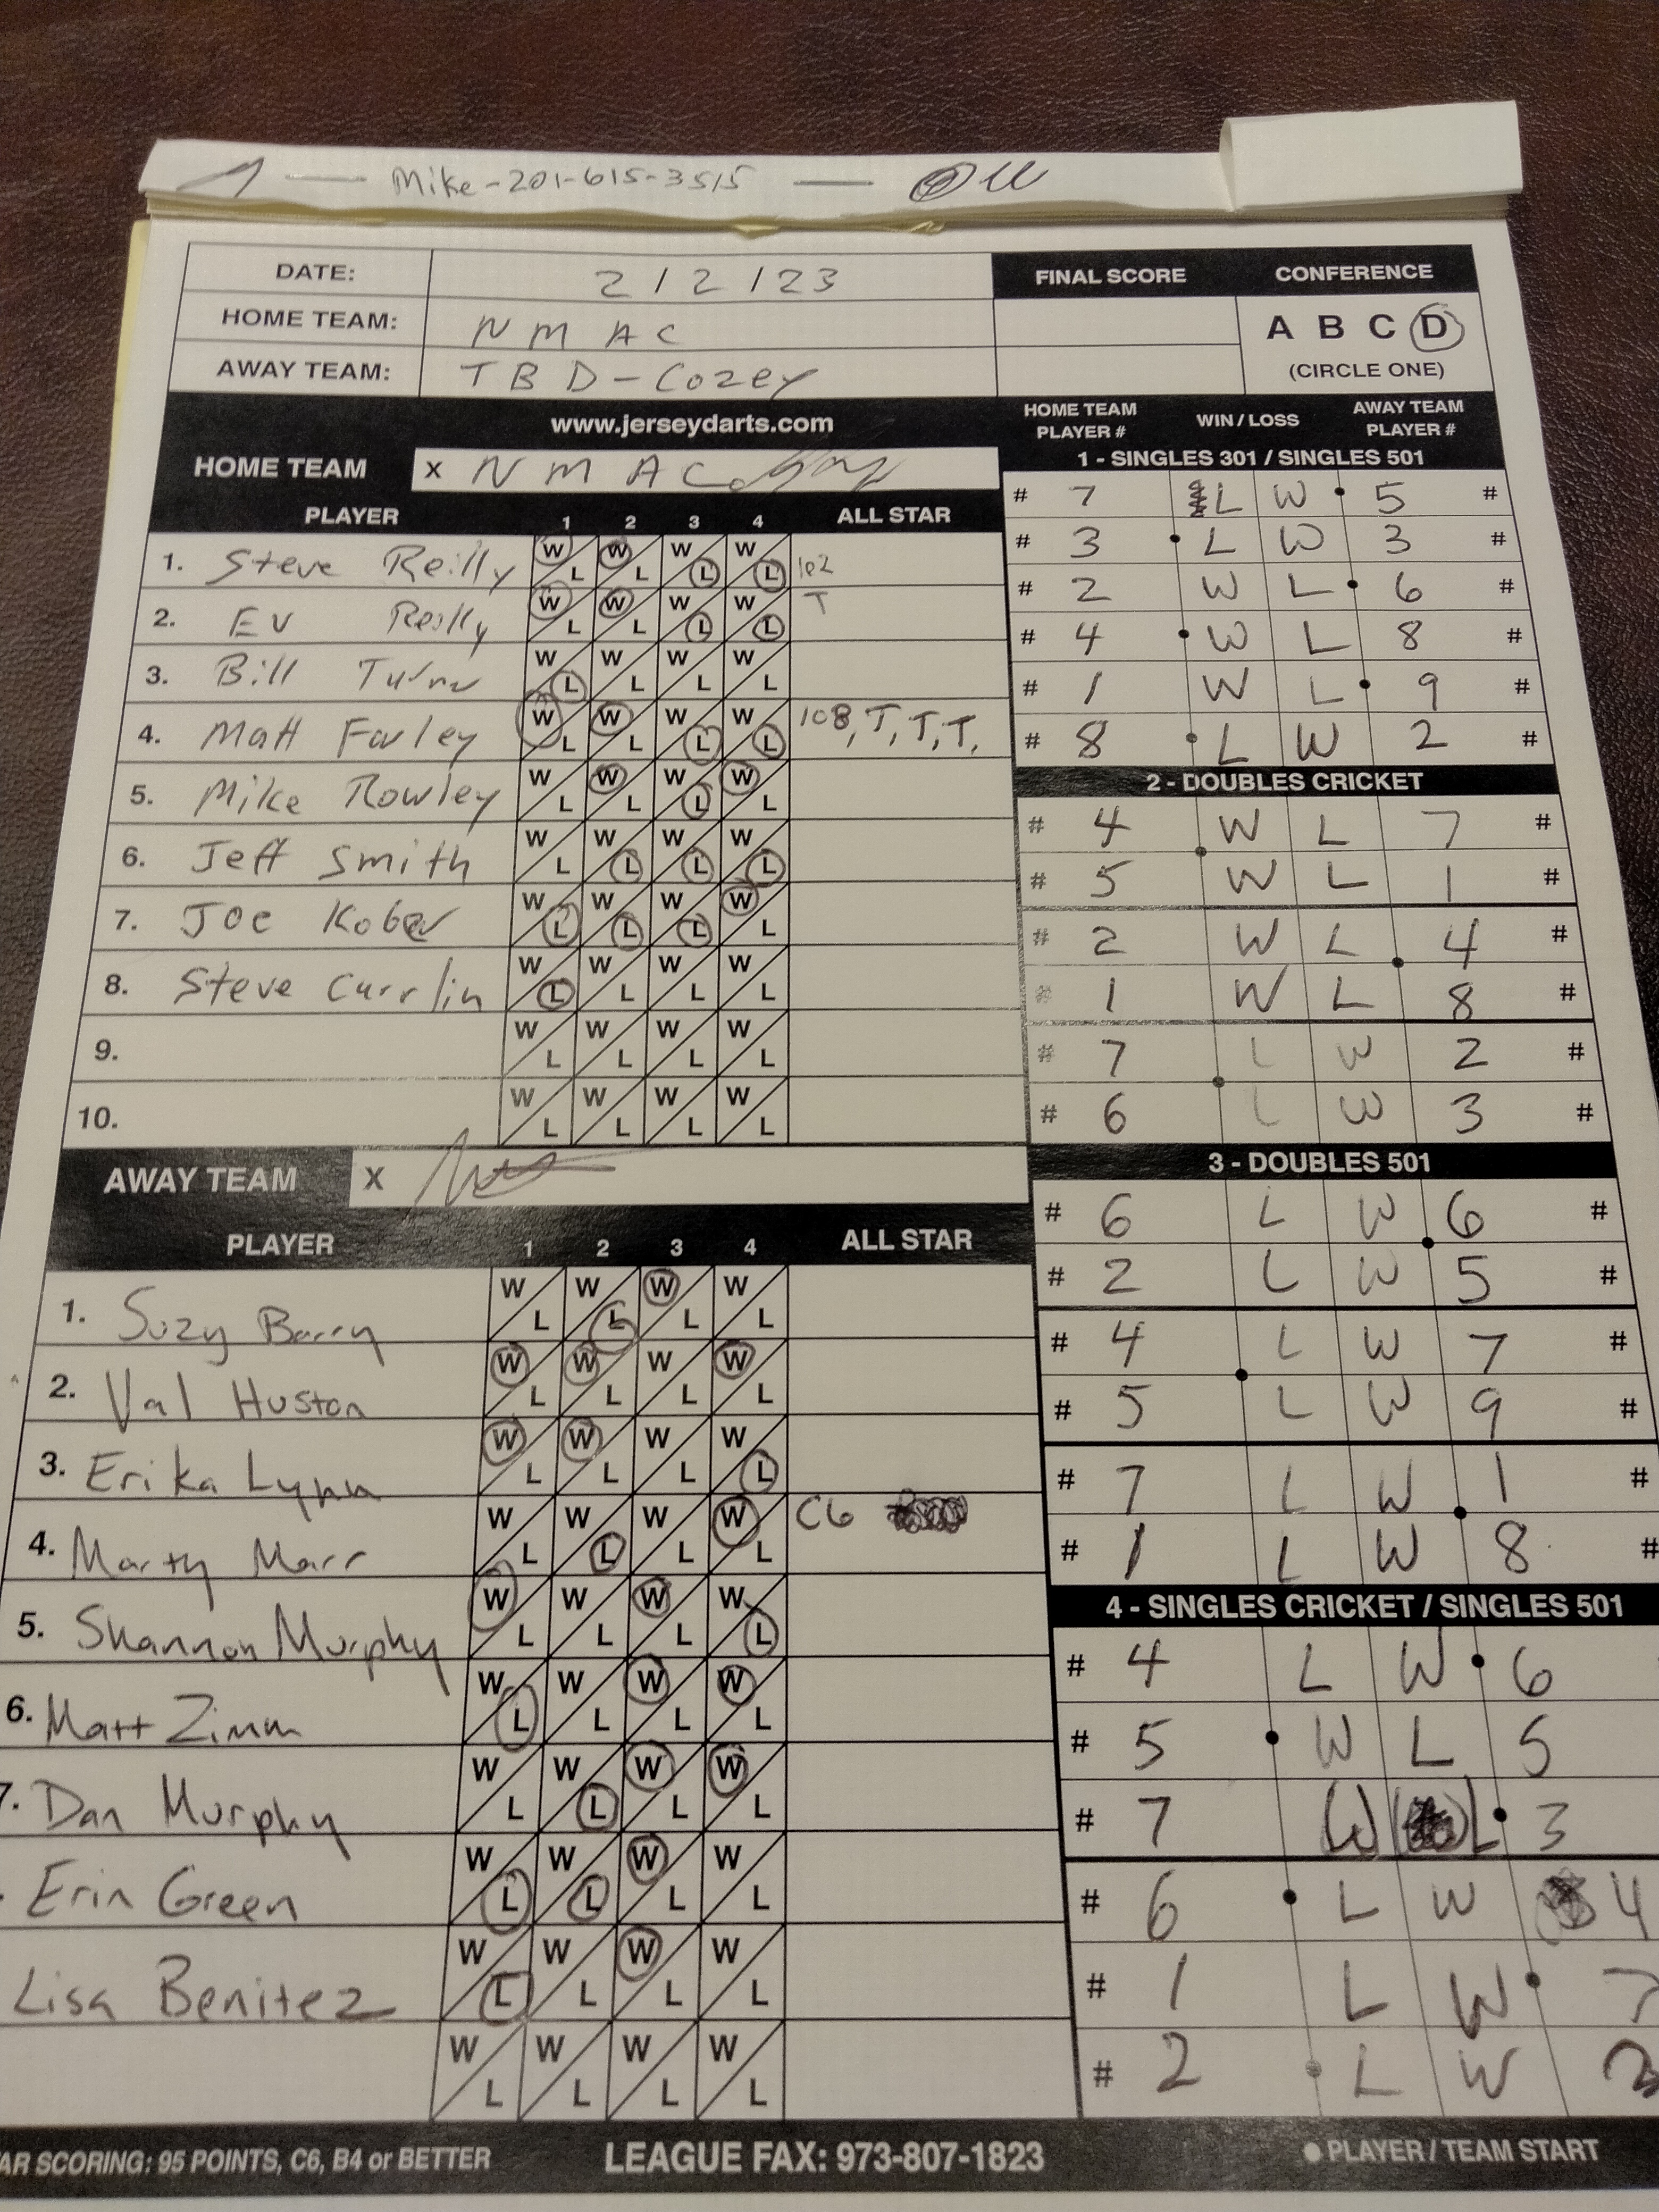 Mike-201-615-3515
DATE: 2/2/23
HOME TEAM: NMAC
AWAY TEAM: TBD-Cozey
FINAL SCORE CONFERENCE
A B C D
(CIRCLE ONE)
www.jerseydarts.com
HOME TEAM X NMAC
PLAYER 1 2 3 4 ALL STAR
1. Steve Reilly W L W L W L W L 102
2. Ev Reilly W L W L W L W L T
3. Bill W L W L W L W L
4. Matt Farley W L W L W L W L 108, T, T, T,
5. Mike Rowley W L W L W L W L
6. Jeff Smith W L W L W L W L
7. Joe Kober W L W L W L W L
8. Steve Currlin W L W L W L W L
9. W L W L W L W L
10. W L W L W L W L
AWAY TEAM X
PLAYER 1 2 3 4 ALL STAR
1. Suzy Barry W L W L W L W L
2. Val Huston W L W L W L W L
3. Erika Lynn W L W L W L W L
4. Marty Marr W L W L W L W L C6
5. Shannon Murphy W L W L W L W L
6. Matt Zimm W L W L W L W L
7. Dan Murphy W L W L W L W L
Erin Green W L W L W L W L
Lisa Benitez W L W L W L W L
W L W L W L W L
HOME TEAM PLAYER # WIN / LOSS AWAY TEAM PLAYER #
1 - SINGLES 301 / SINGLES 501
# 7 L W 5 #
# 3 L W 3 #
# 2 W L 6 #
# 4 W L 8 #
# 1 W L 9 #
# 8 L W 2 #
2 - DOUBLES CRICKET
# 4 W L 7 #
# 5 W L 1 #
# 2 W L 4 #
# 1 W L 8 #
# 7 L W 2 #
# 6 L W 3 #
3 - DOUBLES 501
# 6 L W 6 #
# 2 L W 5 #
# 4 L W 7 #
# 5 L W 9 #
# 7 L W 1 #
# 1 L W 8 #
4 - SINGLES CRICKET / SINGLES 501
# 4 L W 6
# 5 W L 5
# 7 W L 3
# 6 L W 4
# 1 L W 7
# 2 L W 2
AR SCORING: 95 POINTS, C6, B4 or BETTER
LEAGUE FAX: 973-807-1823
PLAYER / TEAM START